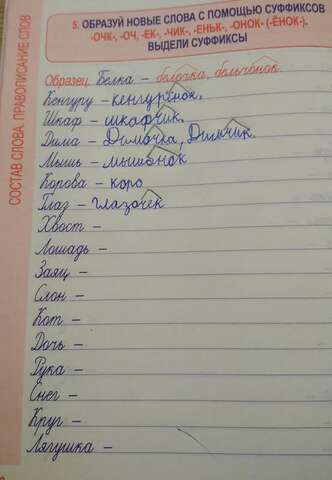 СОСТАВ СЛОВА. ПРАВОПИСАНИЕ СЛОВ
5. ОБРАЗУЙ НОВЫЕ СЛОВА С ПОМОЩЬЮ СУФФИКСОВ
-ОЧК-, -ОЧ, -ЕК-, -ЧИК-, -ЕНЬК-, -ОНОК- (-ЁНОК-).
ВЫДЕЛИ СУФФИКСЫ
Образец. Белка – белочка, бельчонок.
Кенгуру – кенгурёнок.
Шкаф – шкафчик.
Дима – Димочка, Димчик.
Мышь – мышонок
Корова – коро
Глаз – глазочек
Хвост –
Лошадь –
Заяц –
Слон –
Кот –
Дочь –
Рука –
Снег –
Круг –
Лягушка –